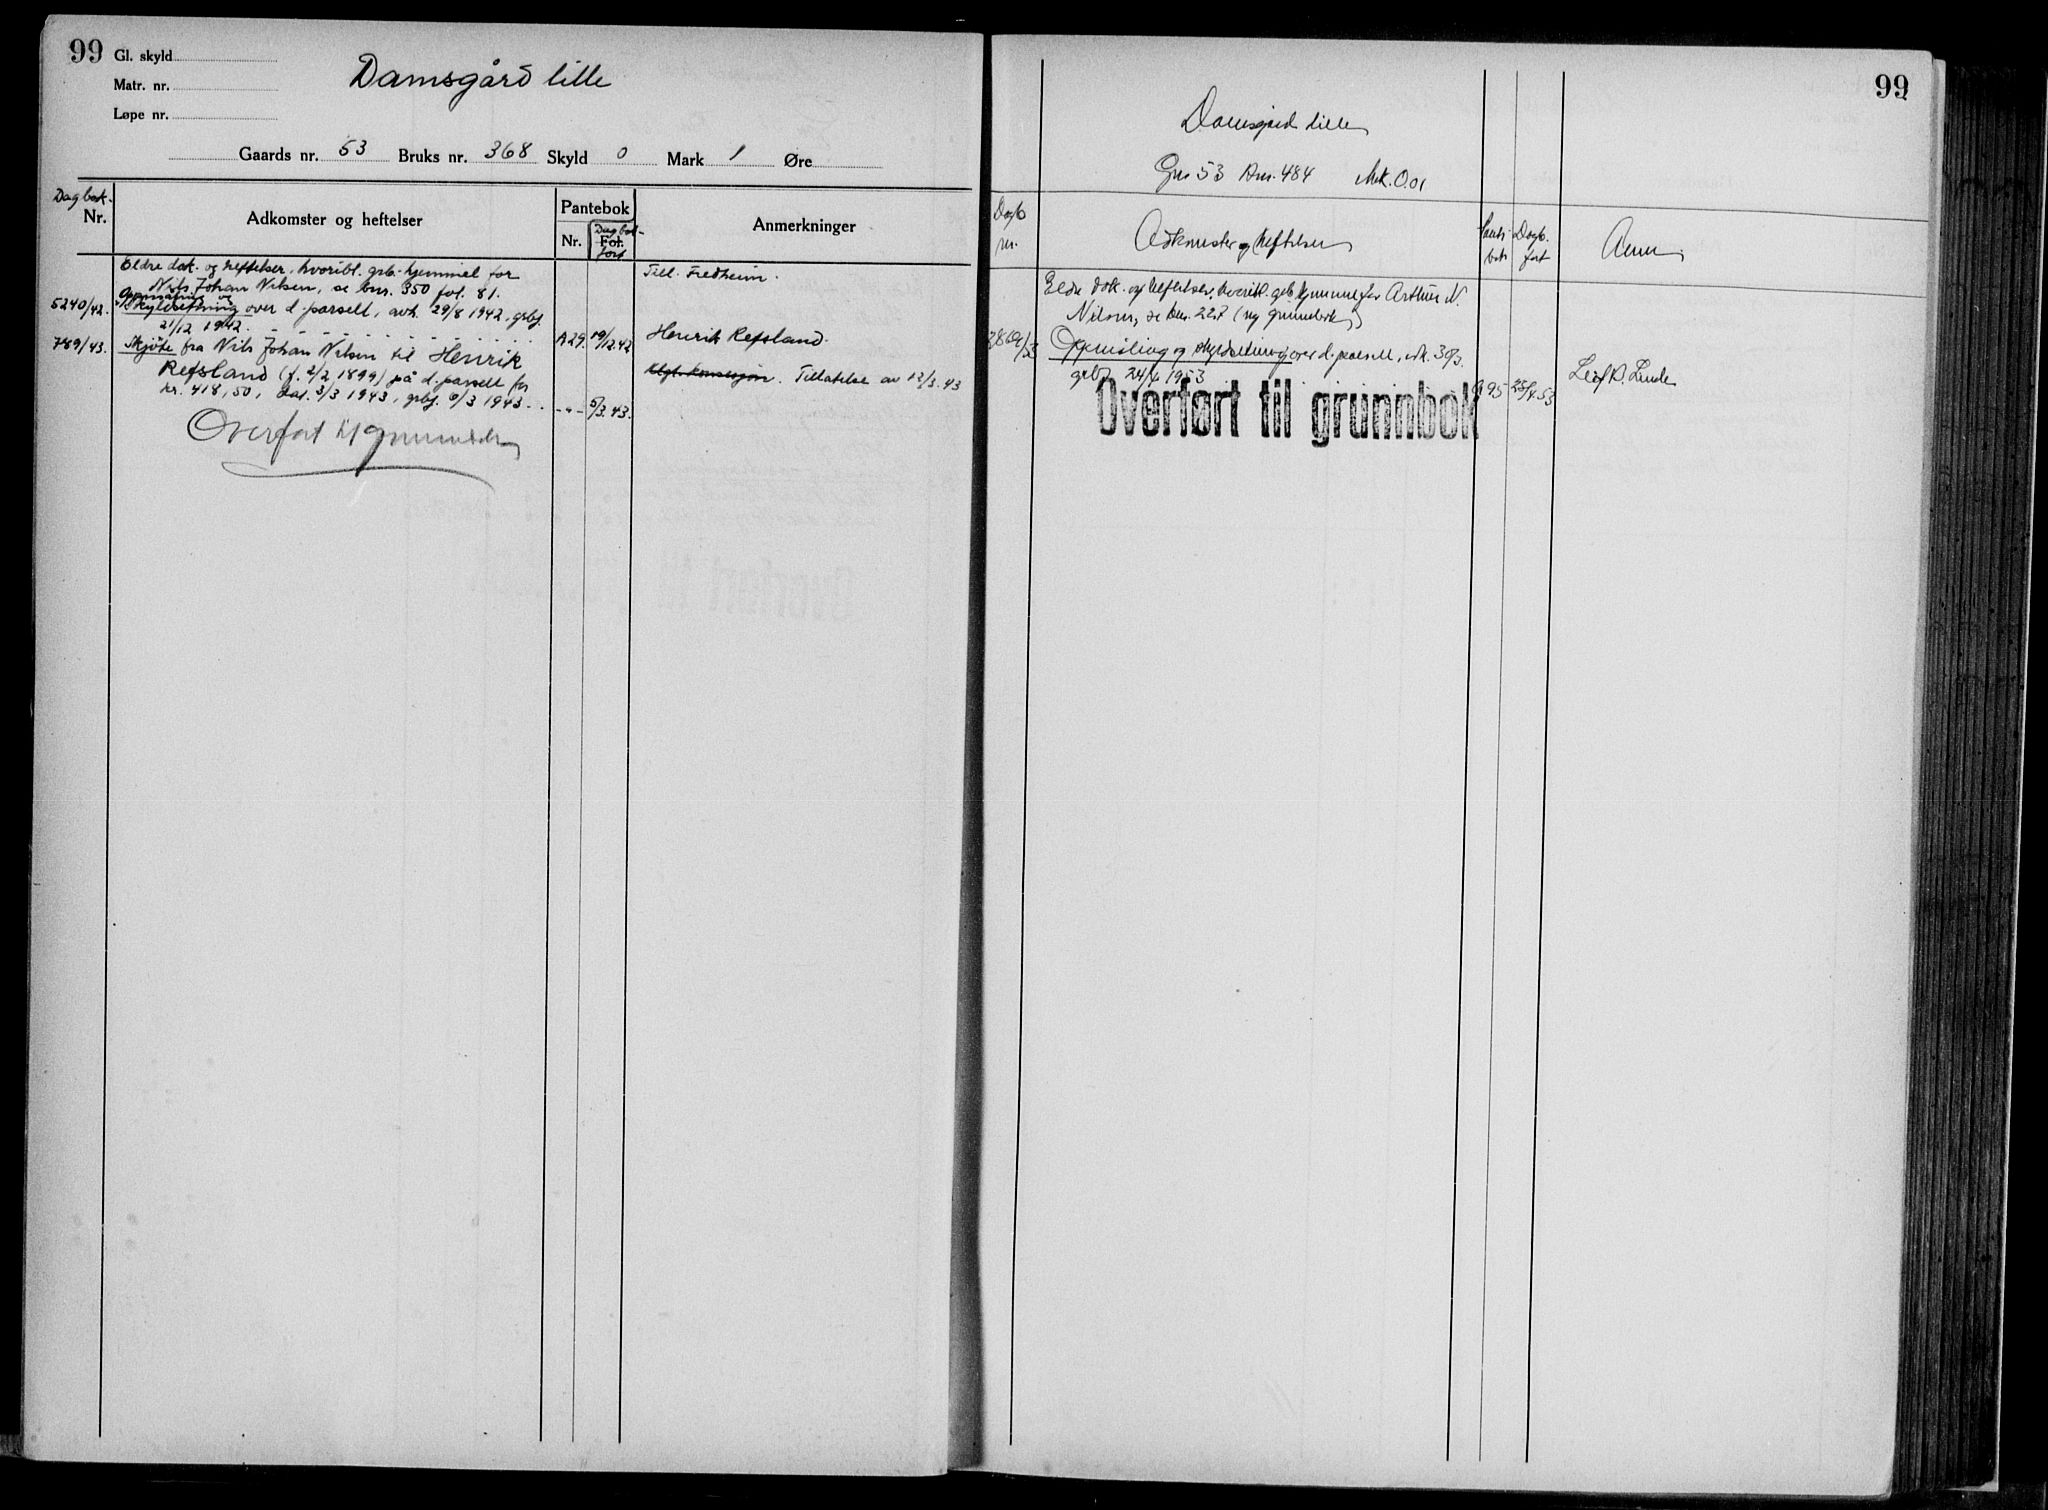 99 Gl. skyld
Matr. nr.
Løpe nr.
Damsgård lille
Gaards nr. 53 Bruks nr. 368 Skyld 0 Mark 1 Øre
Dagbok.
Nr.
Adkomster og heftelser
Pantebok
Nr.
Dagbok-
Fol.
ført
Anmerkninger
Eldre dok. og heftelser, hvoribl. grb.-hjemmel for
Nils Johan Nilsen, se bnr. 350 fol. 81.
Oppmåling og
5240/42. Skyldsetning over d. parsell, avh. 29/8 1942, grbf.
21/12 1942.
A 29. 19/12.42
789/43. Skjøte fra Nils Johan Nilsen til Henrik
Refsland (f. 2/2 1899) på d. parsell for
kr. 418,50, dat. 3/3 1943, grbf. 6/3 1943.
-"- 5/3.43.
Till. Fredheim.
Henrik Refsland.
Utgt. konsesjon. Tillatelse av 12/3.43
Overført til grunnboken
99
Damsgård lille
Gnr 53 Bnr. 484 Mk. 0.01
Dagb
nr.
Adkomster og heftelser
Pante-
bok
Dagb.
ført
Anm.
Eldre dok. og heftelser, hvoribl. grb. hjemmel for Arthur N.
Nilsen, se bnr. 227 (ny grunnbok)
2869/53 Oppmåling og skyldsetning over d. parsell, avh. 30/3.
grbf 24/4 1953
A 95 23/4.53
Leif R. Linde
Overført til grunnbok